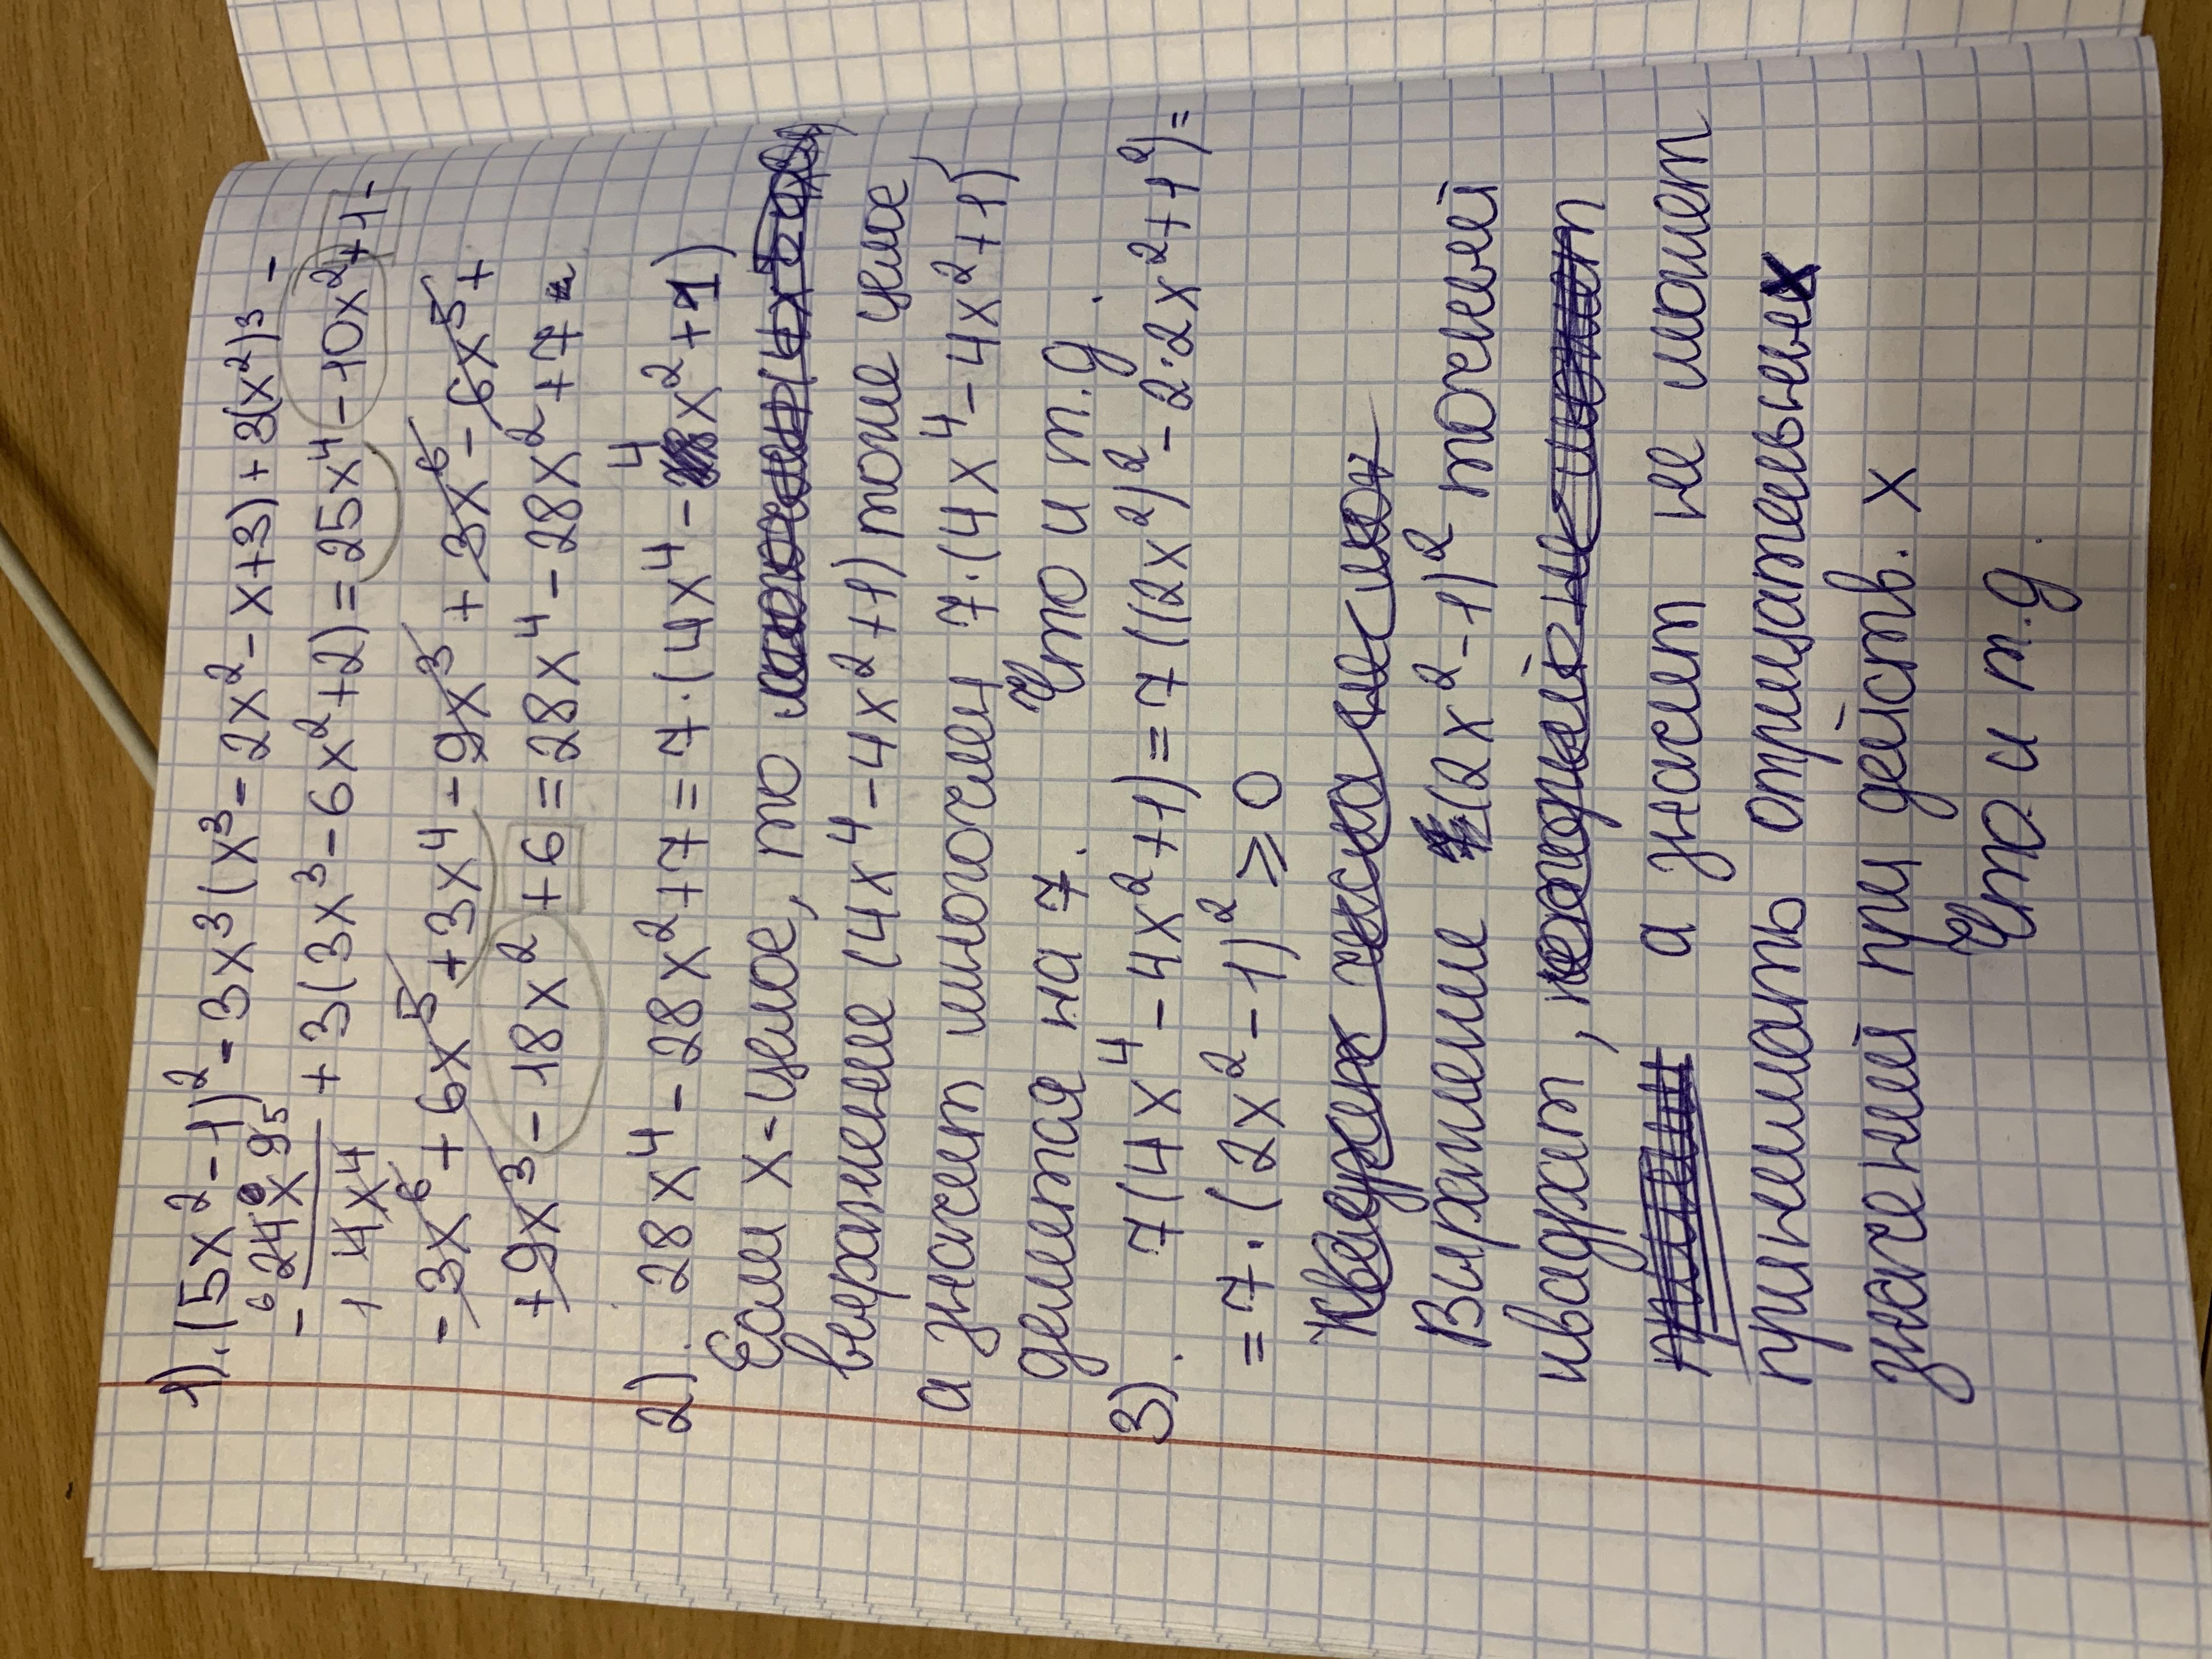 1). (5x²-1)²-3x³(x³-2x²-x+3)+3(x²)³-
-6x⁵
24x⁶ 9
+3(3x³-6x²+2)=25x⁴-10x²+1-
14x⁴
-3x⁶+6x⁵+3x⁴-9x³+3x⁶-6x⁵+
+9x³-18x²+6=28x⁴-28x²+7
2). 28x⁴-28x²+7=7·(4x⁴-4x²+1)
Если x-целое, то
выражение (4x⁴-4x²+1) тоже целое
а значит многочлен 7·(4x⁴-4x²+1)
делится на 7. Что и т.д.
3). 7(4x⁴-4x²+1)=7((2x²)²-2·2x²+1²)=
=7·(2x²-1)²≥0
Выражение (2x²-1)² точный
квадрат,
а значит не может
принимать отрицательных
значений при действ. x
Что и т.д.